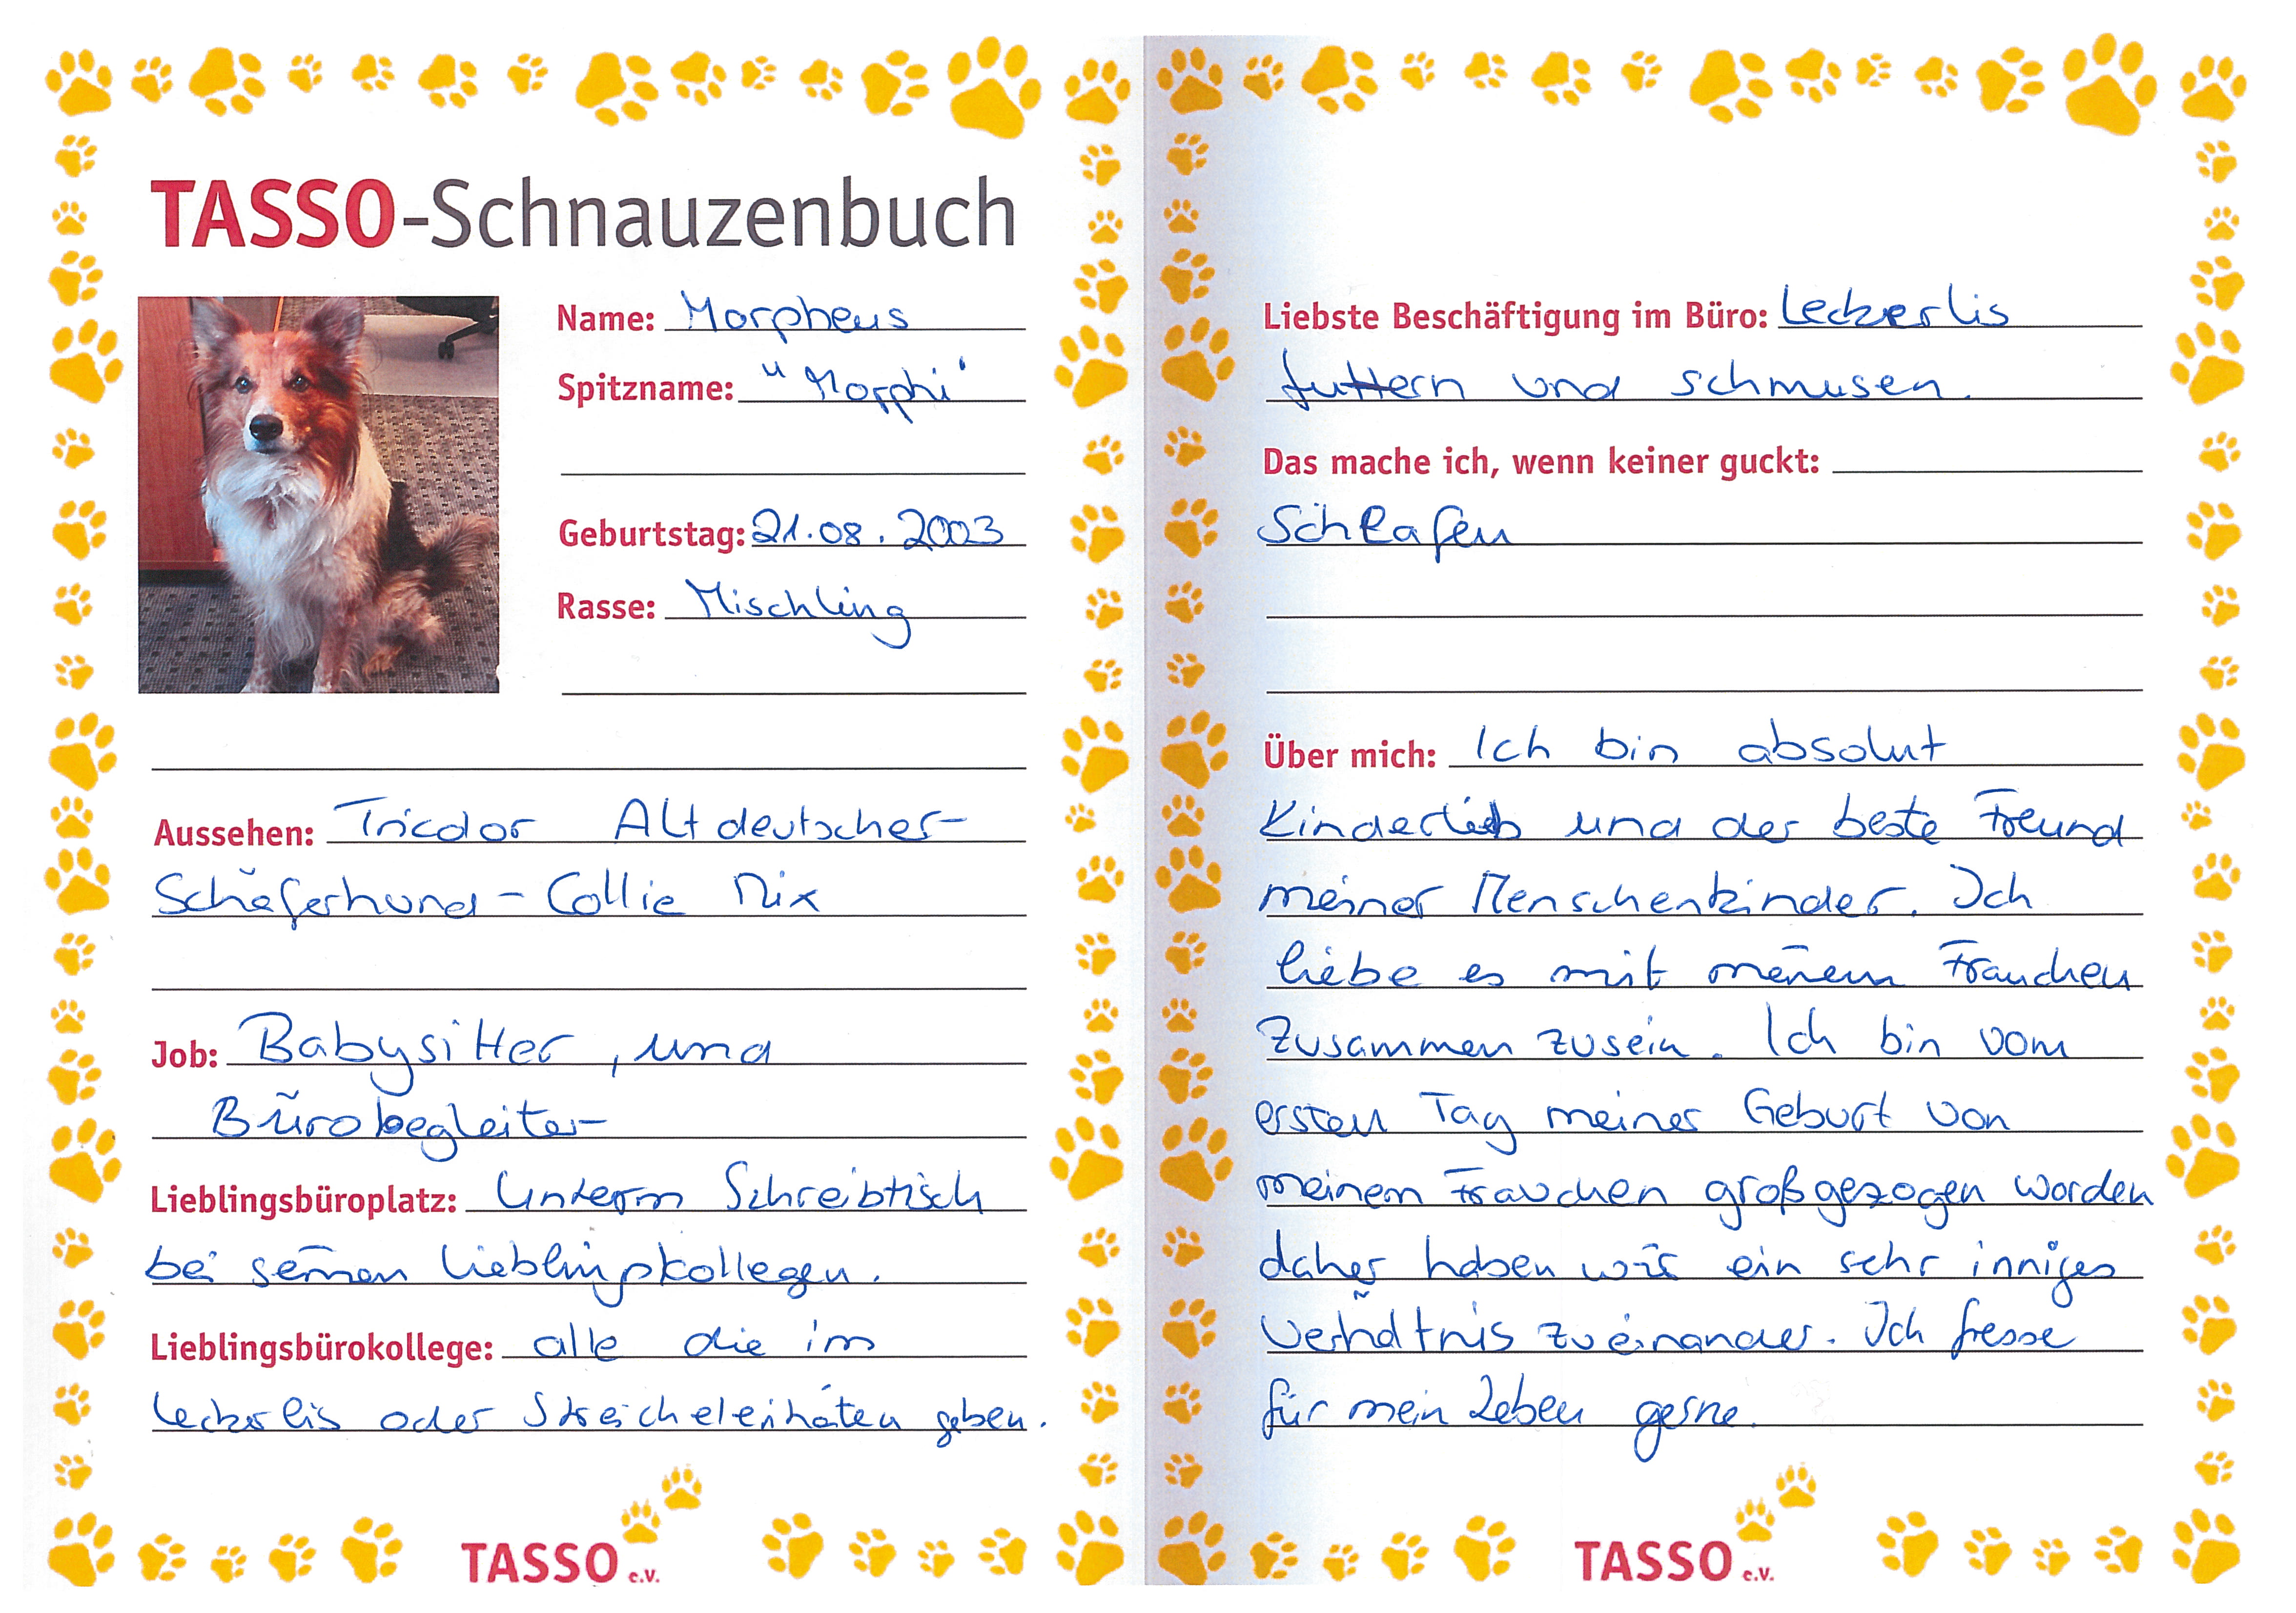 TASSO-Schnauzenbuch
Name: Morpheus
Spitzname: "Morphi"
Geburtstag: 21.08.2003
Rasse: Mischling
Aussehen: Tricolor Altdeutscher-
Schäferhund - Collie Mix
Job: Babysitter, und
Bürobegleiter
Lieblingsbüroplatz: Unterm Schreibtisch
bei seinen Lieblingskollegen.
Lieblingsbürokollege: alle die im
Leckerlis oder Streicheleinhäten geben.
TASSO e.V.
Liebste Beschäftigung im Büro: Leckerlis
futtern und schmusen.
Das mache ich, wenn keiner guckt:
Schlafen
Über mich: Ich bin absolut
Kinderlieb und der beste Freund
meiner Menschenkinder. Ich
liebe es mit meinem Frauchen
zusammen zusein. Ich bin vom
ersten Tag meiner Geburt von
meinem Frauchen großgezogen worden
daher haben wir ein sehr inniges
Verhältnis zueinander. Ich fresse
für mein Leben gerne.
TASSO e.V.